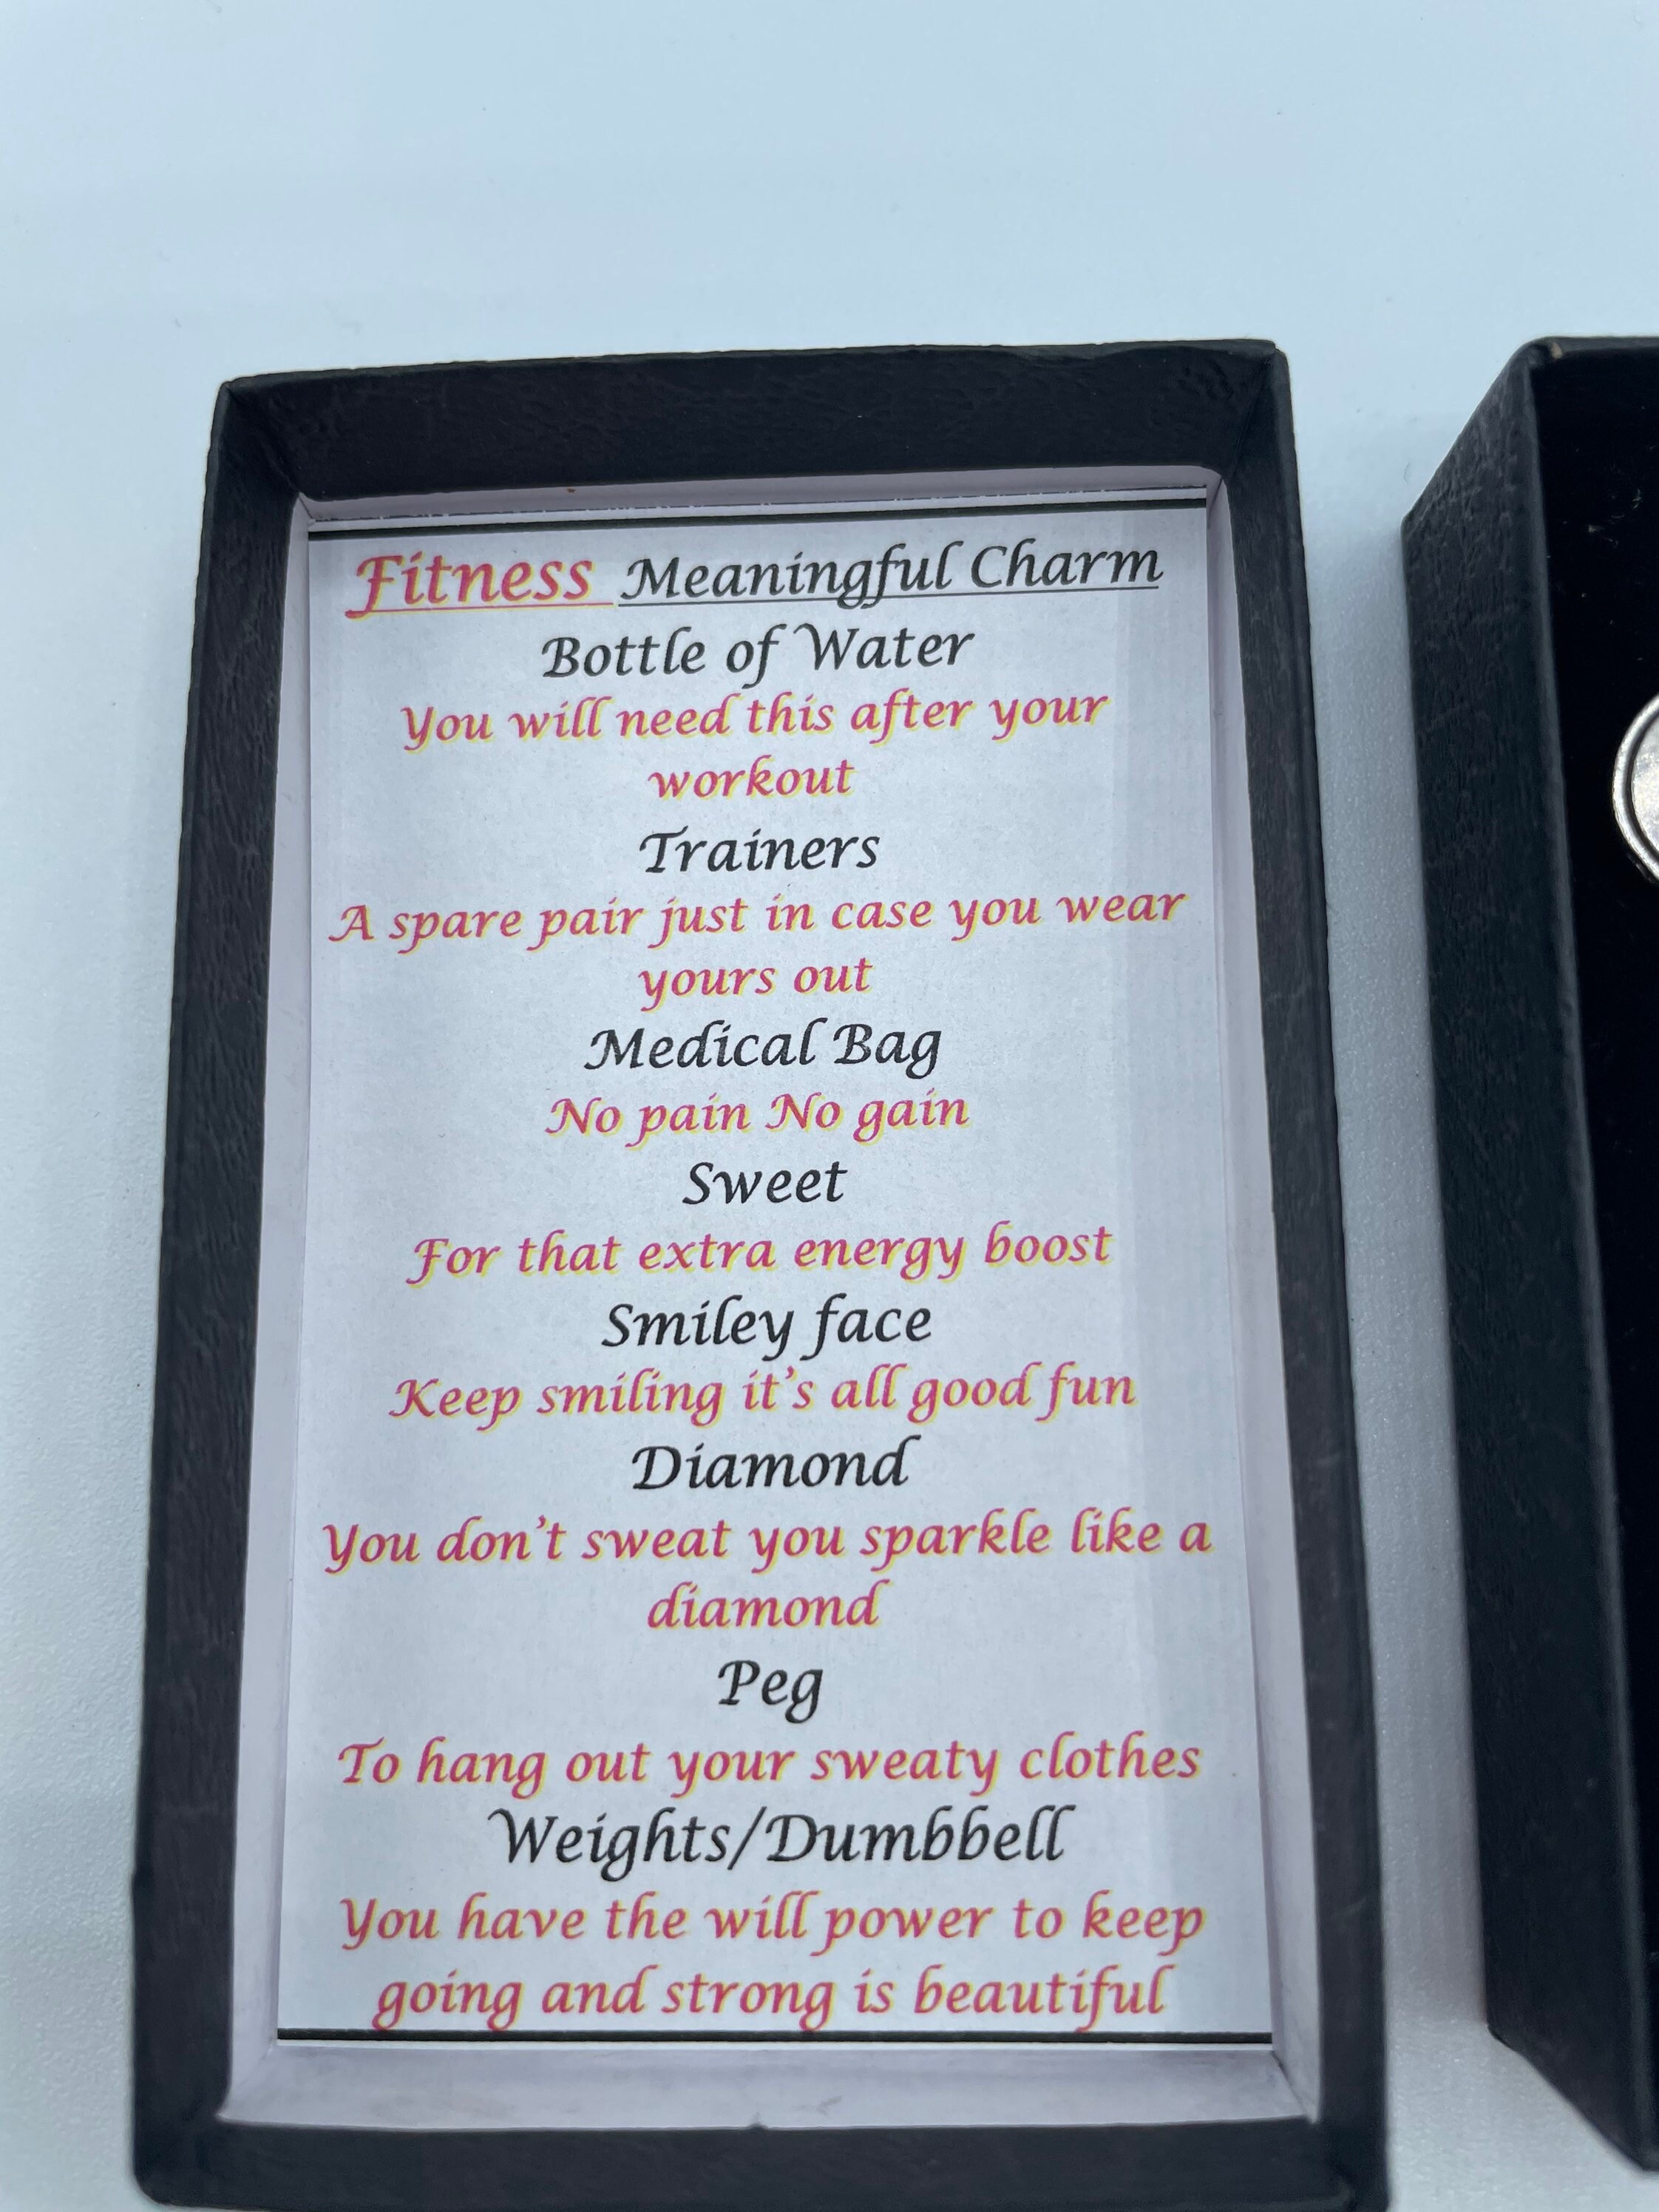 Fitness Meaningful Charm
Bottle of Water
You will need this after your
workout
Trainers
A spare pair just in case you wear
yours out
Medical Bag
No pain No gain
Sweet
For that extra energy boost
Smiley face
Keep smiling it's all good fun
Diamond
You don't sweat you sparkle like a
diamond
Peg
To hang out your sweaty clothes
Weights/Dumbbell
You have the will power to keep
going and strong is beautiful